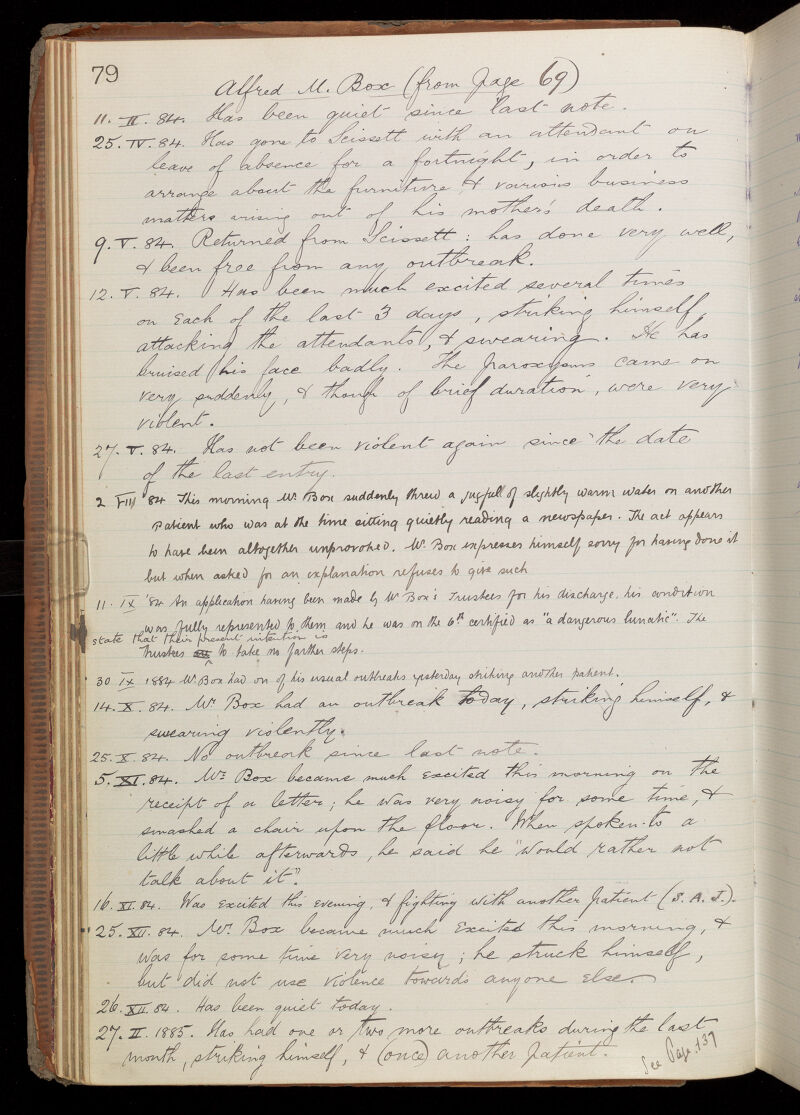 79
Alfred M. Box (from page 69)
11. II. 84. Has been quiet since last note.
25. IV. 84. Has gone to Scissett with an attendant on
leave of absence for a fortnight, in order to
arrange about the furniture & various business
matters arising out of his mother's death.
9. V. 84. Returned from Scissett: has done very well,
& been free from any outbreak.
12. V. 84. Has been much excited several times
on each of the last 3 days, striking himself,
attacking the attendants, & swearing. He has
bruised his face badly. The paroxysms came on
very suddenly, & though of brief duration, were very
violent.
27. V. 84. Has not been violent again since the date
of the last entry.
2 VIII 84 This morning Mr Box suddenly threw a jugfull of slightly warm water on another
patient who was at the time sitting quietly reading a newspaper. The act appears
to have been altogether unprovoked. Mr Box expresses himself sorry for having done it
but when asked for an explanation refuses to give such
11. IX '84 An application having been made by Mr Box's Trustees for his discharge, his condition
was fully represented to them and he was on the 6th certified as "a dangerous lunatic". The
state that their present intention is
Trustees to take no farther steps.
30 IX 1884 Mr Box had on of his usual outbreaks yesterday striking another patient.
14. X. 84. Mr Box had an outbreak today, striking himself, &
swearing violently.
25. X. 84. No outbreak since last note.
5. XI. 84. Mr Box became much excited this morning on the
receipt of a letter; he was very noisy for some time, &
smashed a chair upon the floor. When spoken to a
little while afterwards, he said he "would rather not
talk about it".
16. XI. 84. Was excited this evening, & fighting with another patient (S. A. J.).
25. XII. 84. Mr. Box became much excited this morning, &
was for some time very noisy; he struck himself,
but did not use violence towards anyone else.
26. XII. 84. Has been quiet today.
27. II. 1885. Has had one or two more outbreaks during the last
month, striking himself, & (once) another patient.
See Page 137